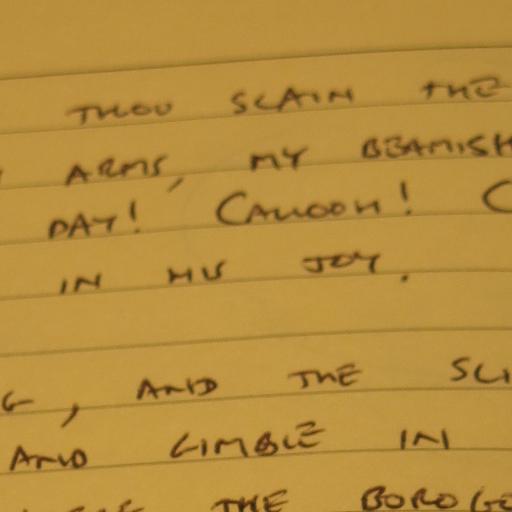 THOU SLAIN THE
ARMS, MY BEAMISH
DAY! CALLOOH! C
IN HIS JOY.
, AND THE SLI
AND GIMBLE IN
THE BOROGO